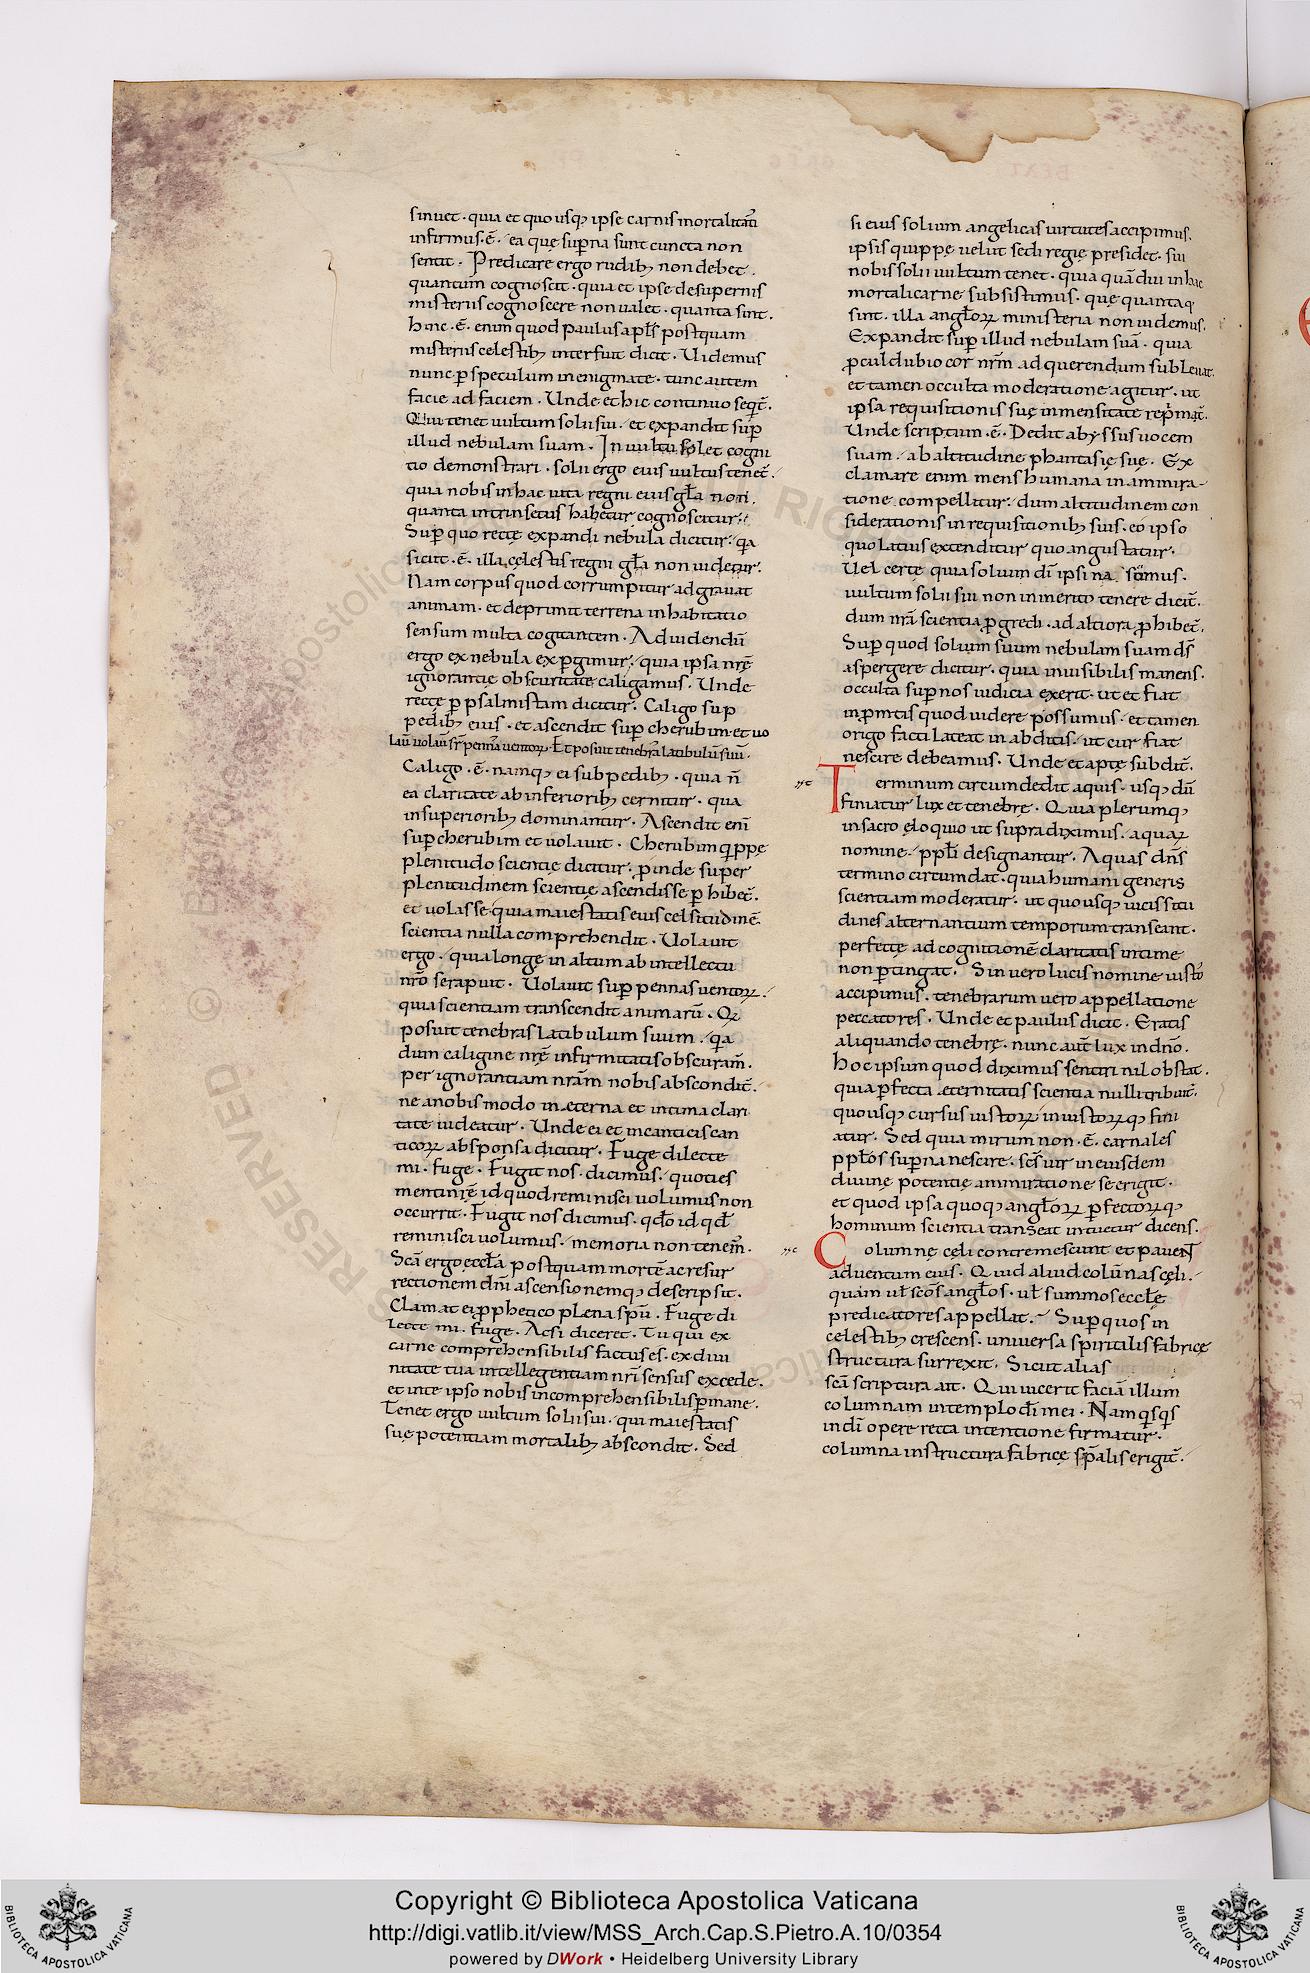 sinuet · quia et quo usq; ipse carnis mortalitati
infirmus · ē · ea quę sup̄na sunt cuncta non
sentit · Predicare ergo rudib; non debet ·
quantum cognoscit · quia et ipse desupernis
misteriis cognoscere non ualet · quanta sint ·
hinc · ē · enim quod paulus apl̄s postquam
misteriis celestib; interfuit dicit · Uidemus
nunc p̄ speculum in enigmate · tunc autem
facie ad faciem · Unde et hic continuo seqt̄ ·
Qui tenet uultum solii sui · et expandit sup̄
illud nebulam suam · In uultu solet cogni
tio demonstrari · solii ergo eius uultus tenet̄ ·
quia nobis in hac uita regni eius gl̄a non
quanta intrinsecus habetur cognoscitur ·
Sup̄ quo recte expandi nebula dicitur · qa
sicut · ē · illa cęlestis regni gl̄a non uidetur ·
Nam corpus quod corrumpitur adgrauat
animam · et deprimit terrena inhabitatio
sensum multa cogitantem · Ad uidendū
ergo ex nebula expgimur · quia ipsa nrę̄
ignorantię obscuritate caligamus · Unde
recte p̄ psalmistam dicitur · Caligo sup
pedib; eius · et ascendit sup̄ cherubim · et uo
lauit uolauit sr̄ pennas uentorꝝ · Et posuit tenebras latibulū suū ·
Caligo · ē · namq; ei sub pedib; · quia n̄
ea claritate ab inferiorib; cernitur · qua
in superiorib; dominantur · Ascendit eni
sup̄ cherubim et uolauit · Cherubim qippę
plenitudo scientię dicitur · p̄inde super
plenitudinem scientię ascendisse phibet̄ ·
et uolasse · quia maiestatis eius celsitudinē
scientia nulla comprehendit · Uolauit
ergo · quia longę in altum ab intellectu
nr̄o se rapuit · Uolauit sup̄ pennas uentorꝝ ·
quia scientiam transcendit animarū · Qꝝ
posuit tenebras latibulum suum · qa
dum caligine nrę̄ infirmitatis obscuram̄ ·
per ignorantiam nr̄am nobis abscondit̄ ·
ne a nobis modo in ęterna et intima clari
tate uideatur · Unde ei et in canticis can
ticorꝝ ab sponsa dicitur · Fuge dilecte
mi · fuge · Fugit nos · dicimus · quoties
menti nrę̄ id quod reminisci uolumus non
occurrit · Fugit nos dicimus · qdo id qd̄
reminisci uolumus · memoria non tenem̄ ·
Sc̄a ergo eccl̄a postquam mortē ac resur
rectionem dn̄i ascensionemq; descripsit ·
Clamat ei p̄phetico plena spū · Fuge di
lecte mi · fuge · Acsi diceret · Tu qui ex
carne comprehensibilis factus es · ex diui
nitate tua intellegentiam nr̄i sensus excede ·
et in te ipso nobis incomprehensibilis p̄mane ·
Tenet ergo uultum solii sui · qui maiestatis
suę potentiam mortalib; abscondit · Sed
si eius solium angelicas uirtutes accipimus ·
ipsis quippę uelut sedi regię presidet · sui
nobis solii uultum tenet · quia quā diu in hac
mortali carne subsistimus · quę quantaq
sint · illa angl̄orꝝ ministeria non uidemus ·
Expandit sup̄ illud nebulam suā · quia
p̄cul dubio cor nr̄m ad querendum subleuat ·
et tamen occulta moderatione agitur · ut
ipsa requisitionis suę inmensitate reprimat̄ ·
Unde scriptum · ē · Dedit abyssus uocem
suam · ab altitudine phantasię suę · Ex
clamare enim mens humana in ammira-
tione compellitur · dum altitudinem con
siderationis in requisitionib; suis · eo ipso
quo latius extenditur quo angustatur ·
Uel certe quia solium dī ipsi na sumus ·
uultum solii sui non inmerito tenere dicit̄ ·
dum nr̄a scientia p̄gredi · ad altiora p̄hibet̄ ·
Sup̄ quod solium suum nebulam suam ds̄
aspergere dicitur · quia inuisibilis manens ·
occulta sup̄ nos iudicia exerit · ut et fiat
in p̄mtis quod uidere possumus · et tamen
origo facti lateat in abditis · ut cur fiat
nescire debeamus · Unde et apte subdit̄ ·
Terminum circumdedit aquis · usq; dū
finiatur lux et tenebrę · Quia plerumq;
in sacro eloquio ut supra diximus · aquaꝝ
nomine · ppl̄i designantur · Aquas dn̄s
termino circumdat · quia humani generis
scientiam moderatur · ut quousq; uicissitu
dines alternantium temporum transeant ·
perfectę ad cognitionē claritatis intimę
non p̄tingat · Sin uero lucis nomine iustos
accipimus · tenebrarum uero appellatione
peccatores · Unde et paulus dicit · Eratis
aliquando tenebrę · nunc aut̄ lux in dn̄o ·
Hoc ipsum quod diximus sentiri nil obstat ·
quia p̄fecta ęternitatis scientia nulli tribuit̄ ·
quousq; cursus iustorꝝ iniustorꝝq; fini
atur · Sed quia mirum non · ē · carnales
ppl̄os sup̄na nescire · sc̄s uir in eiusdem
diuinę potentię ammiratione se erigit ·
et quod ipsa quoq; angl̄orꝝ p̄fectorꝝq;
hominum scientia transeat intuetur dicens ·
Columnę cęli contremescunt et pauent
aduentum eius · Quid aliud colūnas cęli ·
quam ul̄ sc̄os angl̄os · ul̄ summos eccl̄ę
predicatores appellat · Sup̄ quos in
celestib; crescens · uniuersa spiritalis fabricę
structura surrexit · Sicut alias
sc̄a scriptura ait · Qui uicerit faciā illum
columnam in templo dī mei · Nam qisqis
in dī opere recta intentione firmatur ·
columna in structura fabricę sp̄alis erigit̄ ·
Copyright © Biblioteca Apostolica Vaticana
http://digi.vatlib.it/view/MSS_Arch.Cap.S.Pietro.A.10/0354
powered by DWork • Heidelberg University Library
BIBLIOTECA APOSTOLICA VATICANA
BIBLIOTECA APOSTOLICA VATICANA